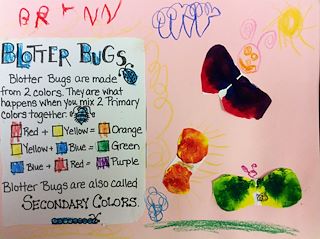 BRYNN
BLOTTER BUGS
Blotter Bugs are made
from 2 colors. They are what
happens when you mix 2 Primary
colors together.
Red + Yellow = Orange
Yellow + Blue = Green
Blue + Red = Purple
Blotter Bugs are also called
SECONDARY COLORS.